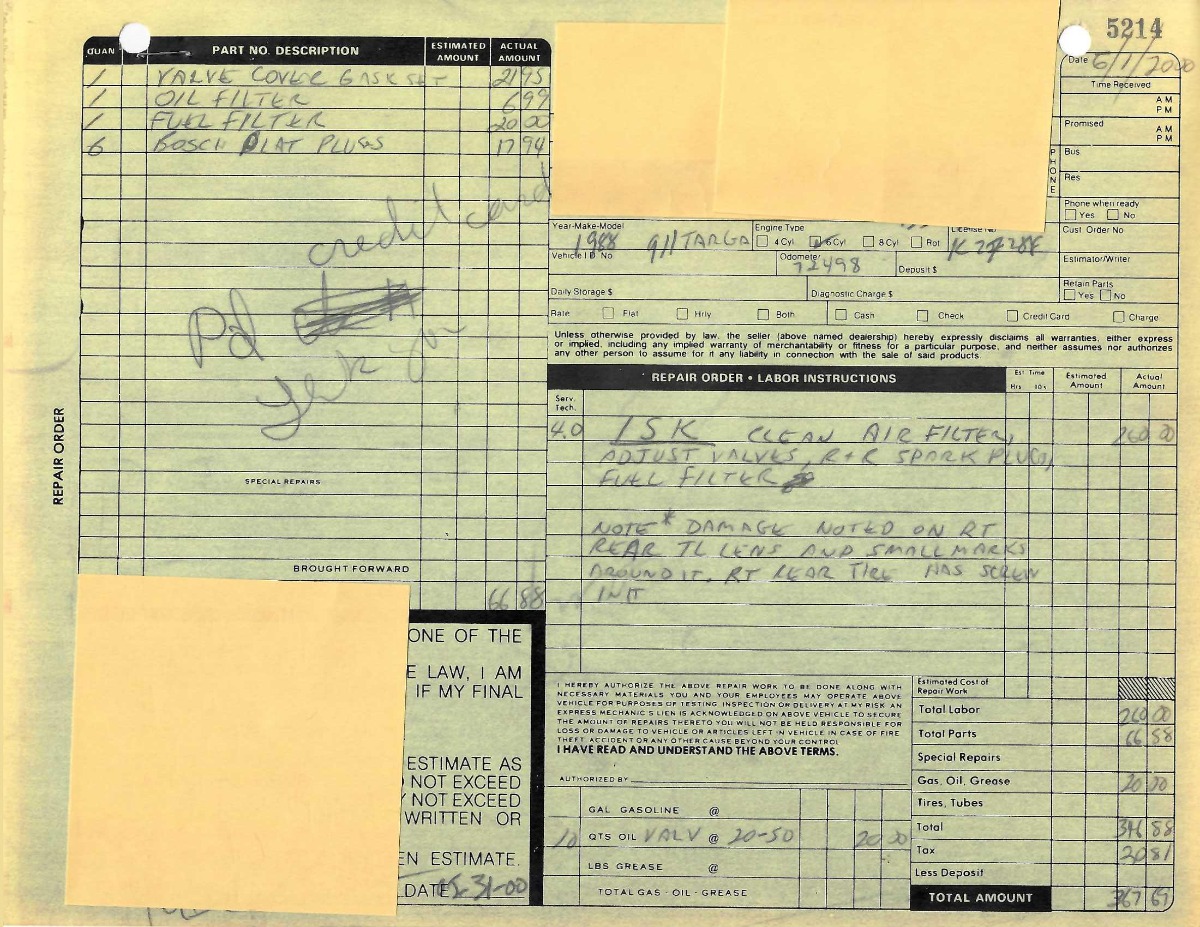 5214
QUAN PART NO. DESCRIPTION ESTIMATED AMOUNT ACTUAL AMOUNT
1 VALVE COVER GASK SET 21 95
1 OIL FILTER 6 99
1 FUEL FILTER 20 00
6 BOSCH PLAT PLUGS 17 94
credit card
Pd
SPECIAL REPAIRS
BROUGHT FORWARD
66 88
REPAIR ORDER
ONE OF THE
E LAW, I AM
IF MY FINAL
ESTIMATE AS
NOT EXCEED
Y NOT EXCEED
WRITTEN OR
EN ESTIMATE.
DATE 05-31-00
Date 6/1/2000
Time Received
AM
PM
Promised
AM
PM
PHONE
Bus
Res
Phone when ready
Yes No
Cust Order No
Estimator/Writer
Retain Parts
Yes No
Year-Make-Model 1988 911 TARGA Engine Type 4 Cyl 6 Cyl 8 Cyl Rot License No
Vehicle I D No Odometer 72498 Deposit $
Daily Storage $ Diagnostic Charge $
Rate Flat Hrly Both Cash Check Credit Card Charge
Unless otherwise provided by law, the seller (above named dealership) hereby expressly disclaims all warranties, either express
or implied, including any implied warranty of merchantability or fitness for a particular purpose, and neither assumes nor authorizes
any other person to assume for it any liability in connection with the sale of said products
REPAIR ORDER • LABOR INSTRUCTIONS Est Time Hrs 10s Estimated Amount Actual Amount
Serv. Tech.
4.0 15K CLEAN AIR FILTER, 260 00
ADJUST VALVES, R+R SPARK PLUGS,
FUEL FILTER
NOTE* DAMAGE NOTED ON RT
REAR TL LENS AND SMALL MARKS
AROUND IT. RT REAR TIRE HAS SCREW
IN IT
I HEREBY AUTHORIZE THE ABOVE REPAIR WORK TO BE DONE ALONG WITH
NECESSARY MATERIALS YOU AND YOUR EMPLOYEES MAY OPERATE ABOVE
VEHICLE FOR PURPOSES OF TESTING INSPECTION OR DELIVERY AT MY RISK AN
EXPRESS MECHANICS LIEN IS ACKNOWLEDGED ON ABOVE VEHICLE TO SECURE
THE AMOUNT OF REPAIRS THERETO YOU WILL NOT BE HELD RESPONSIBLE FOR
LOSS OR DAMAGE TO VEHICLE OR ARTICLES LEFT IN VEHICLE IN CASE OF FIRE
THEFT ACCIDENT OR ANY OTHER CAUSE BEYOND YOUR CONTROL
I HAVE READ AND UNDERSTAND THE ABOVE TERMS.
AUTHORIZED BY
GAL GASOLINE @
10 QTS OIL VALV @ 20-50 20 00
LBS GREASE @
TOTAL GAS - OIL - GREASE
Estimated Cost of Repair Work
Total Labor 260 00
Total Parts 66 88
Special Repairs
Gas, Oil, Grease 20 00
Tires, Tubes
Total 346 88
Tax 20 81
Less Deposit
TOTAL AMOUNT 367 69